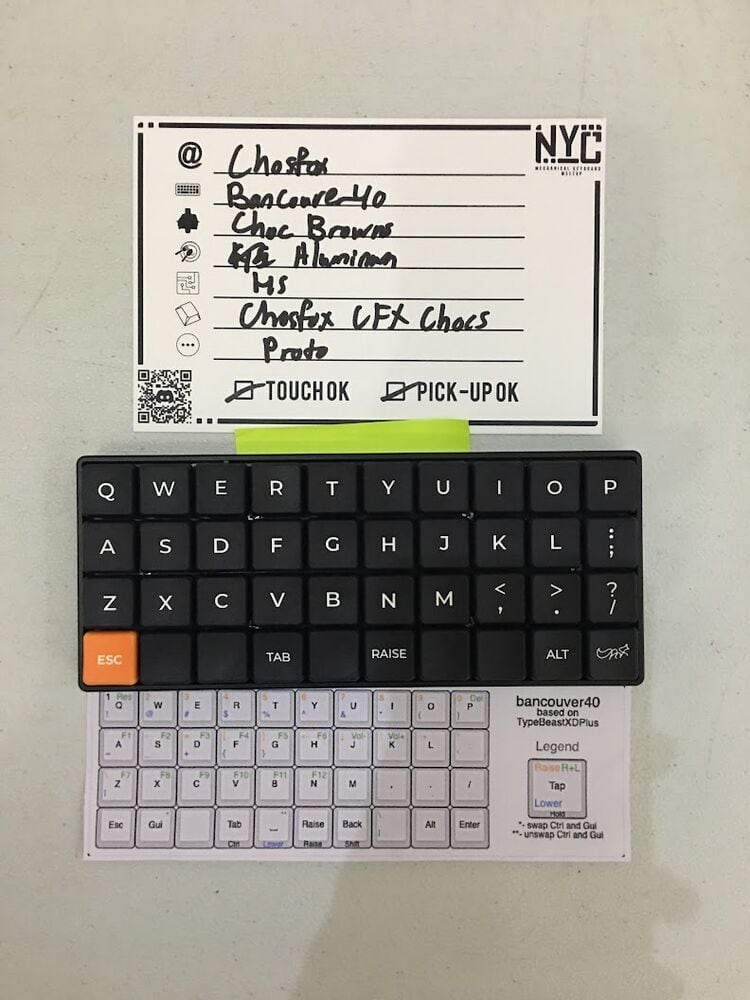 NYC
MECHANICAL KEYBOARD
MEETUP
@ Chosfox
Bancouver40
Choc Browns
Aluminum
HS
Chosfox CFX Chocs
Proto
TOUCH OK PICK-UP OK
Q W E R T Y U I O P
A S D F G H J K L : ;
Z X C V B N M < , > . ? /
ESC TAB RAISE ALT
bancouver40
based on
TypeBeastXDPlus
Legend
Raise R+L
Tap
Lower
Hold
*- swap Ctrl and Gui
**- unswap Ctrl and Gui
1 Res 2 3 4 5 6 7 8 9 0 Del
Q W E R T Y U I O P
! @ # $ % ^ & * ( )
F1 F2 F3 F4 F5 F6 Vol- Vol+
A S D F G H J K L
F7 F8 F9 F10 F11 F12
Z X C V B N M , . /
Esc Gui Tab Raise Back Alt Enter
Ctrl Lower Raise Shift